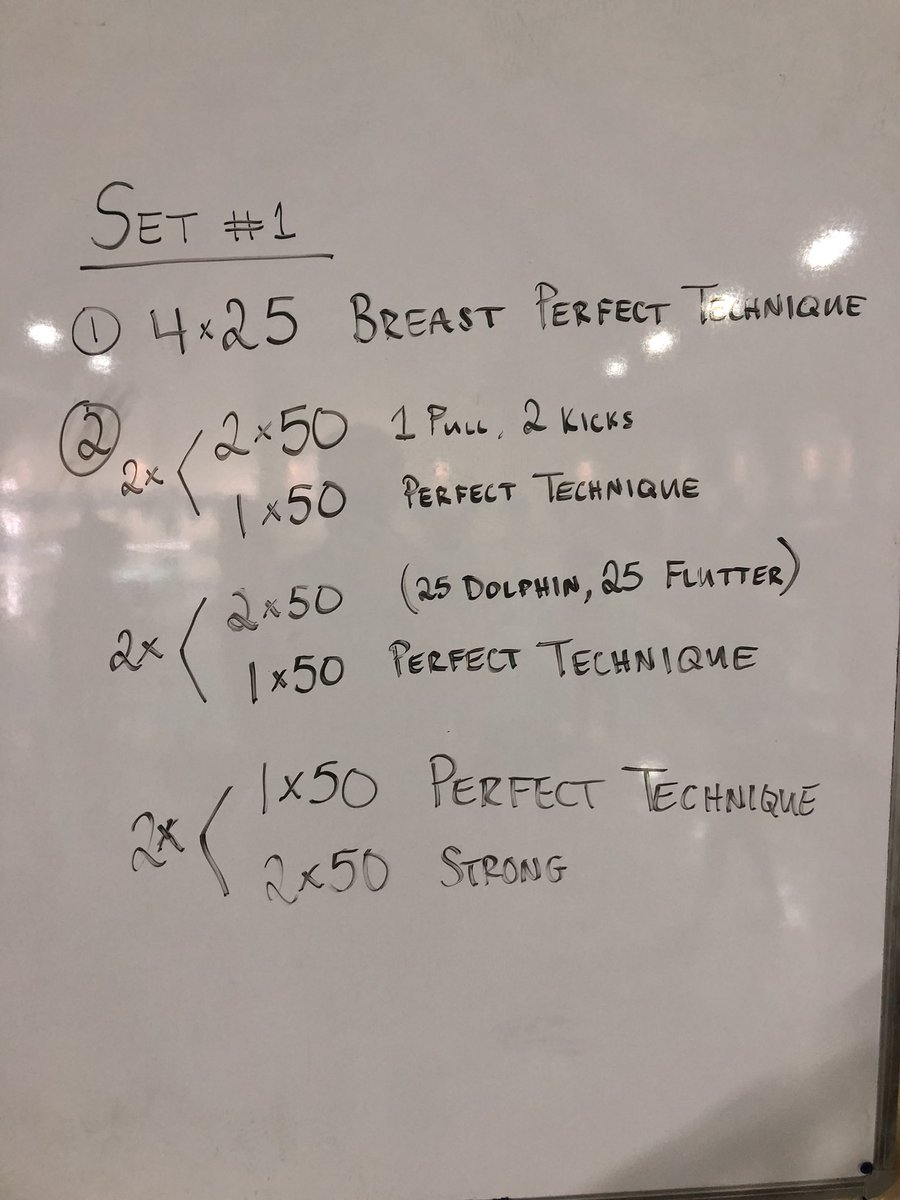 SET #1
① 4x25 BREAST PERFECT TECHNIQUE
② 2x < 2x50 1 PULL, 2 KICKS
1x50 PERFECT TECHNIQUE
2x < 2x50 (25 DOLPHIN, 25 FLUTTER)
1x50 PERFECT TECHNIQUE
2x < 1x50 PERFECT TECHNIQUE
2x50 STRONG